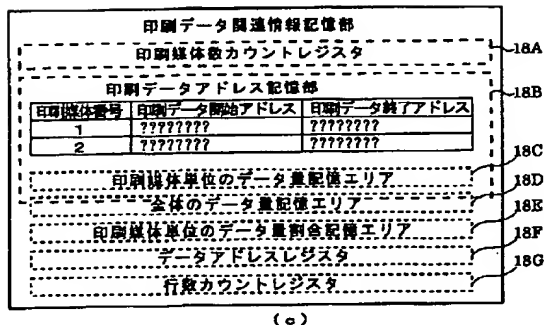 印刷データ関連情報記憶部
印刷媒体数カウントレジスタ
18A
印刷データアドレス記憶部
18B
印刷媒体番号 印刷データ開始アドレス 印刷データ終了アドレス
1 ???????? ????????
2 ???????? ????????
18C
印刷媒体単位のデータ量記憶エリア
18D
全体のデータ量記憶エリア
18E
印刷媒体単位のデータ量割合記憶エリア
18F
データアドレスレジスタ
18G
行数カウントレジスタ
(c)